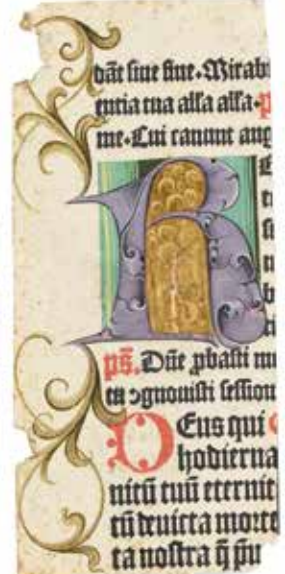 dāt ſine fine. Mirabi
entia tua alla alla. p
me. Cui canunt ang
R
ps̄. Dn̄e ꝓbaſti m
tu ꝯgnouiſti ſeſſion
DEus qui
hodierna
nitū tuū eternit
tū deuicta morte
ta noſtra q̄